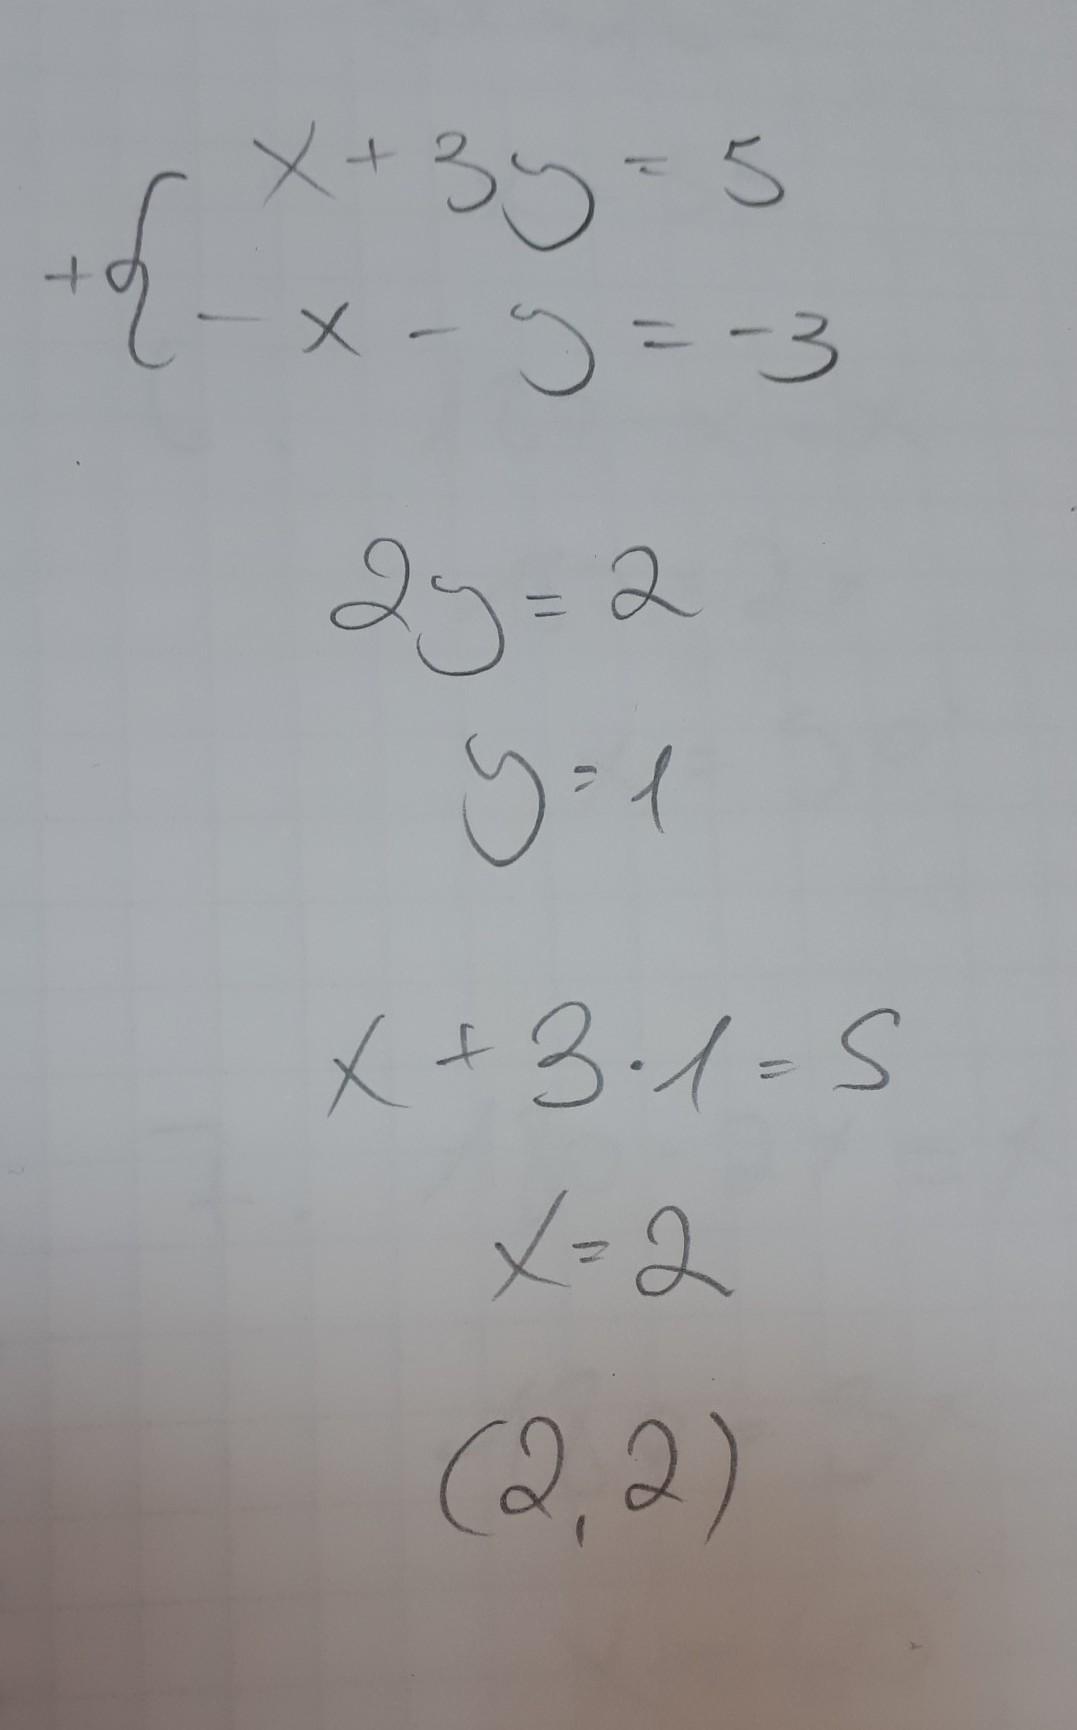 x + 3y = 5
+{
- x - y = -3
2y = 2
y = 1
x + 3 · 1 = 5
x = 2
(2, 2)